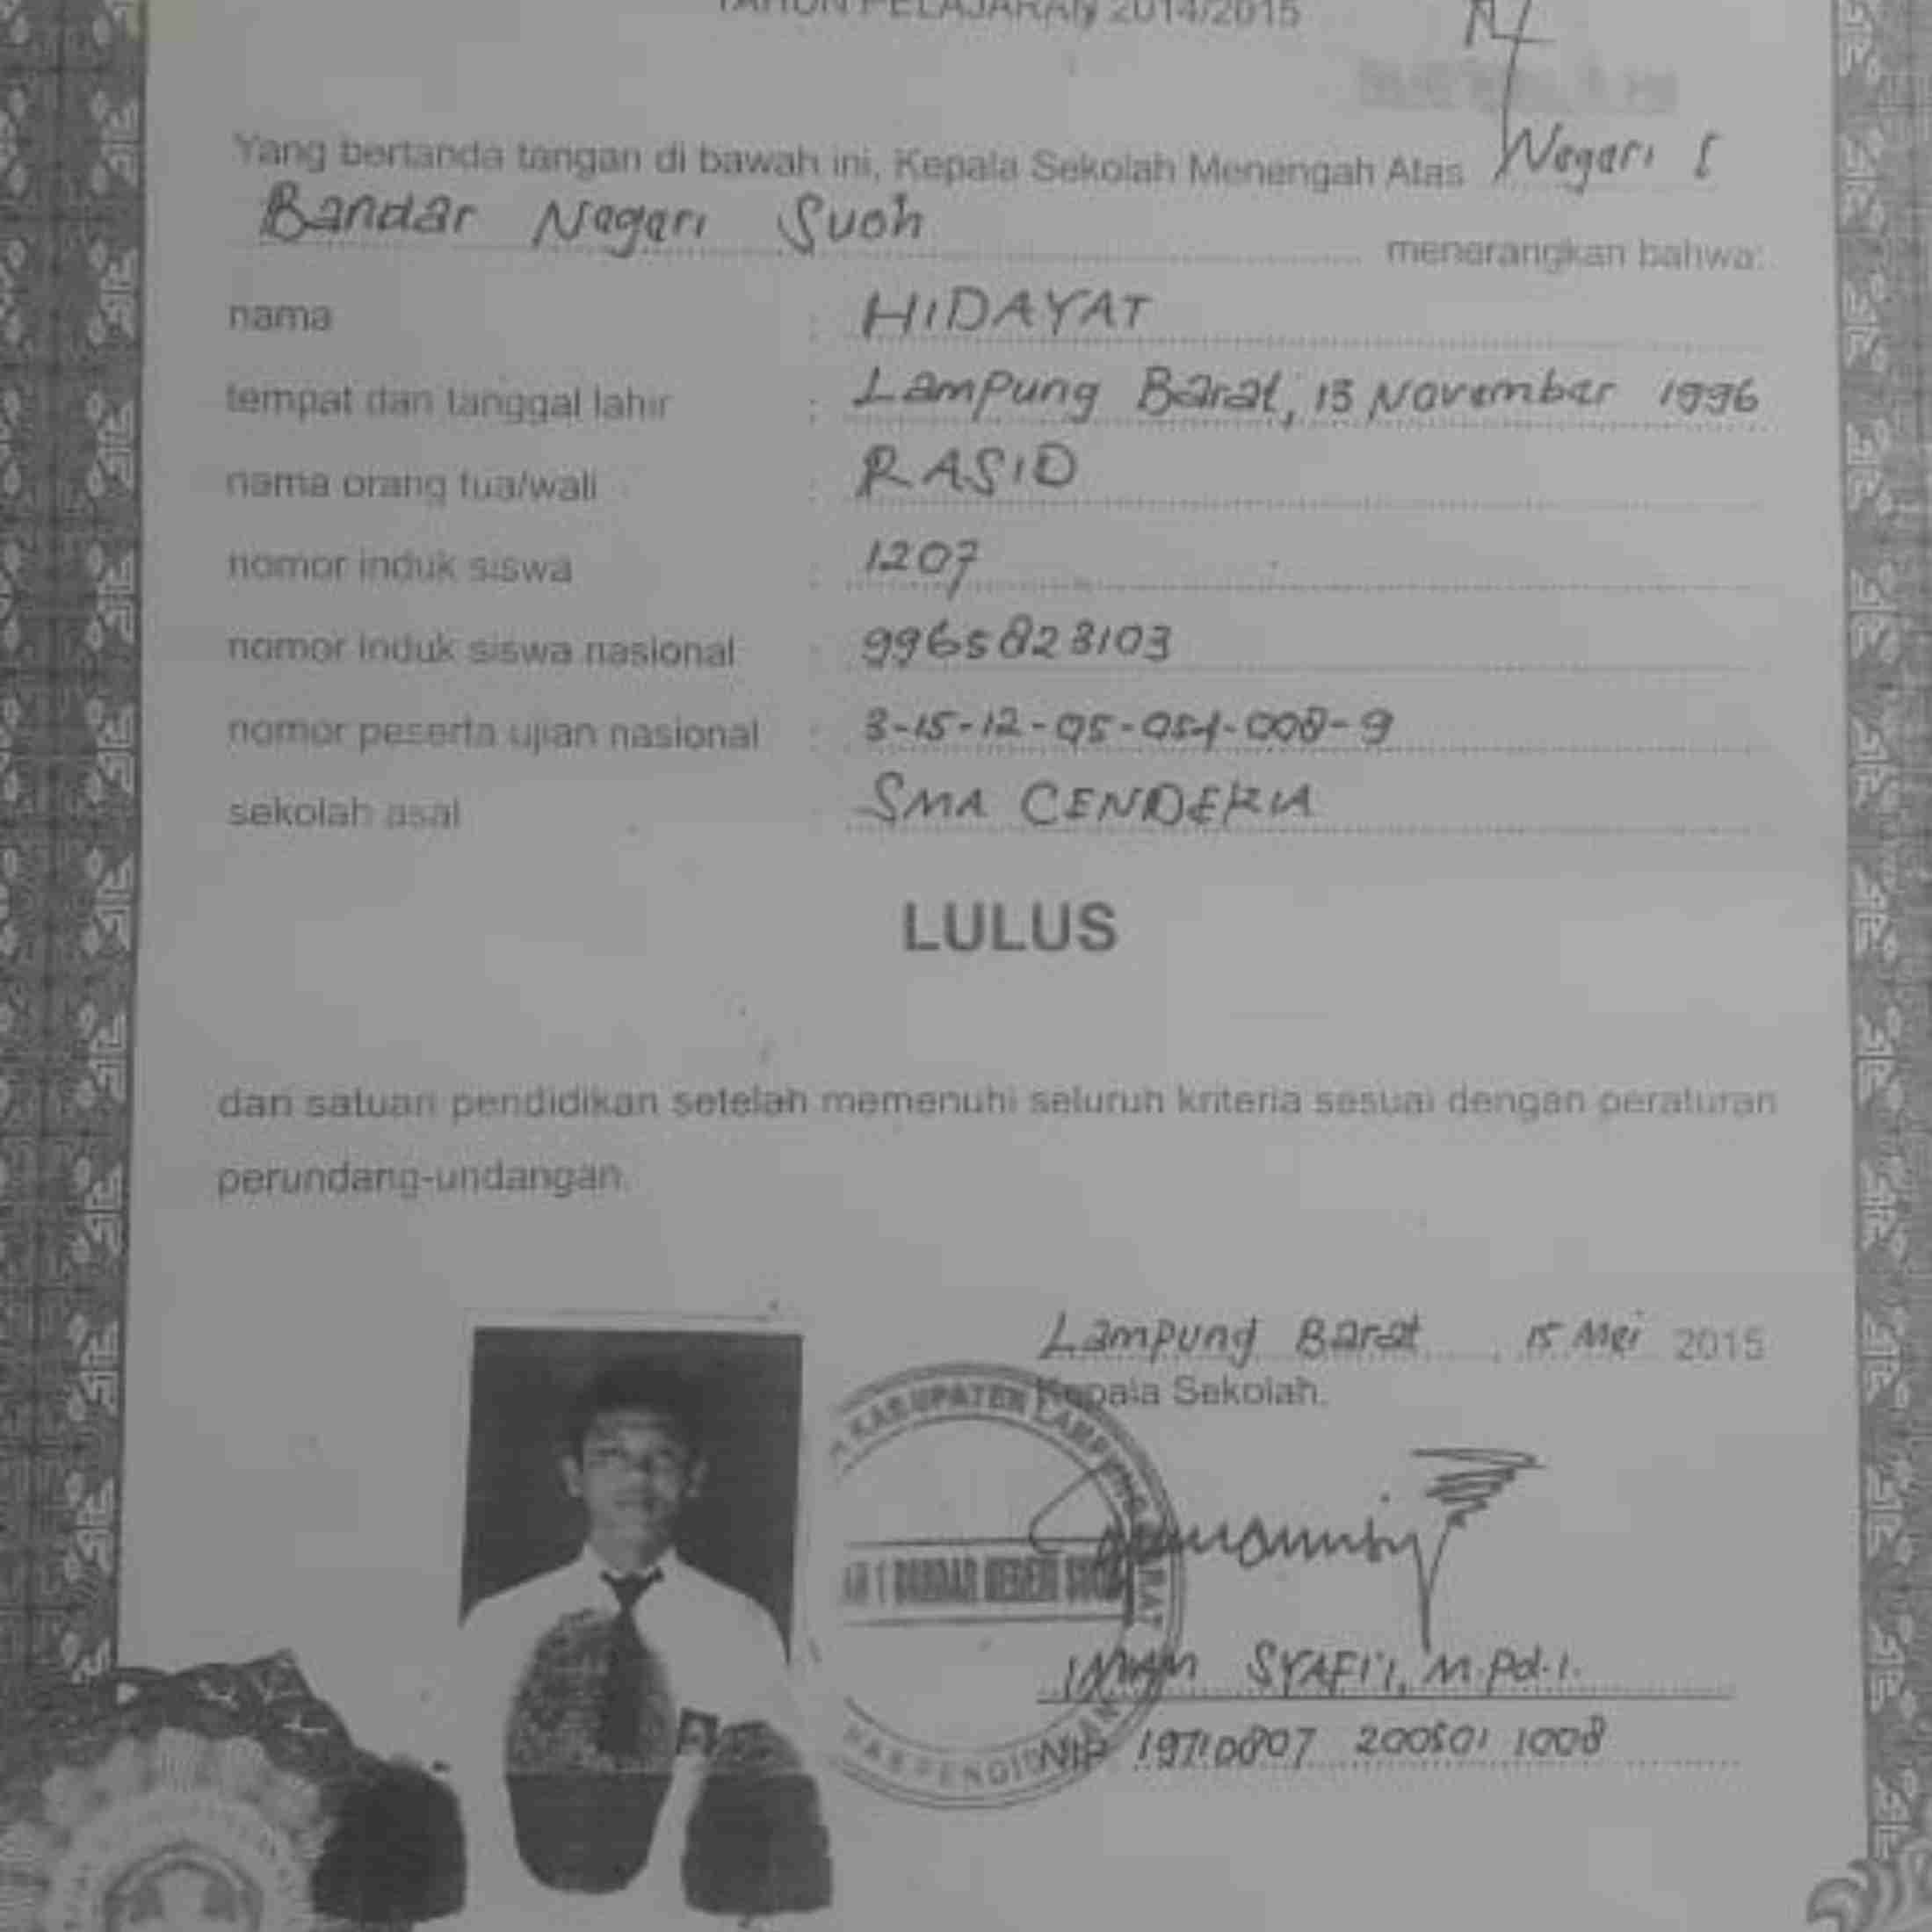 TAHUN PELAJARAN 2014/2015
Yang bertanda tangan di bawah ini, Kepala Sekolah Menengah Atas Negeri 1
Bandar Negeri Suoh menerangkan bahwa:
nama : HIDAYAT
tempat dan tanggal lahir : Lampung Barat, 13 November 1996
nama orang tua/wali : RASID
nomor induk siswa : 1207
nomor induk siswa nasional : 9965823103
nomor peserta ujian nasional : 3-15-12-05-054-008-9
sekolah asal : SMA CENDEKIA
LULUS
dari satuan pendidikan setelah memenuhi seluruh kriteria sesuai dengan peraturan
perundang-undangan.
Lampung Barat, 15 Mei 2015
Kepala Sekolah,
KABUPATEN LAMPUNG BARAT
1 BANDAR NEGERI SUOH
IMAM SYAFI'I, M.Pd.I.
NIP 19710807 200501 1008